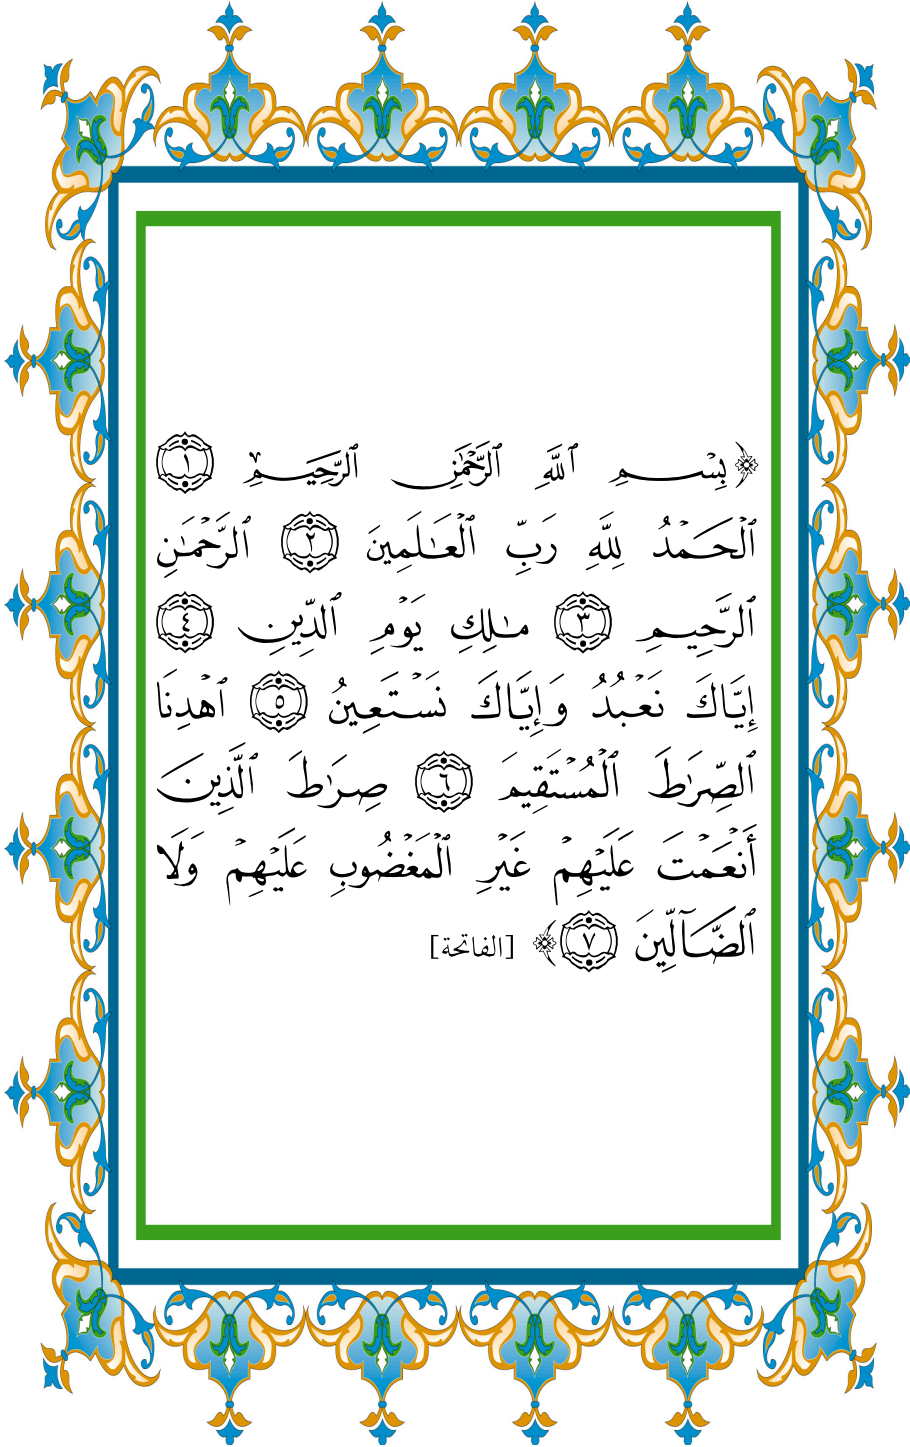 ﴿بِسۡمِ ٱللَّهِ ٱلرَّحۡمَٰنِ ٱلرَّحِيمِ ١
ٱلۡحَمۡدُ لِلَّهِ رَبِّ ٱلۡعَٰلَمِينَ ٢ ٱلرَّحۡمَٰنِ
ٱلرَّحِيمِ ٣ مَٰلِكِ يَوۡمِ ٱلدِّينِ ٤
إِيَّاكَ نَعۡبُدُ وَإِيَّاكَ نَسۡتَعِينُ ٥ ٱهۡدِنَا
ٱلصِّرَٰطَ ٱلۡمُسۡتَقِيمَ ٦ صِرَٰطَ ٱلَّذِينَ
أَنۡعَمۡتَ عَلَيۡهِمۡ غَيۡرِ ٱلۡمَغۡضُوبِ عَلَيۡهِمۡ وَلَا
ٱلضَّآلِّينَ ٧﴾ [الفاتحة]